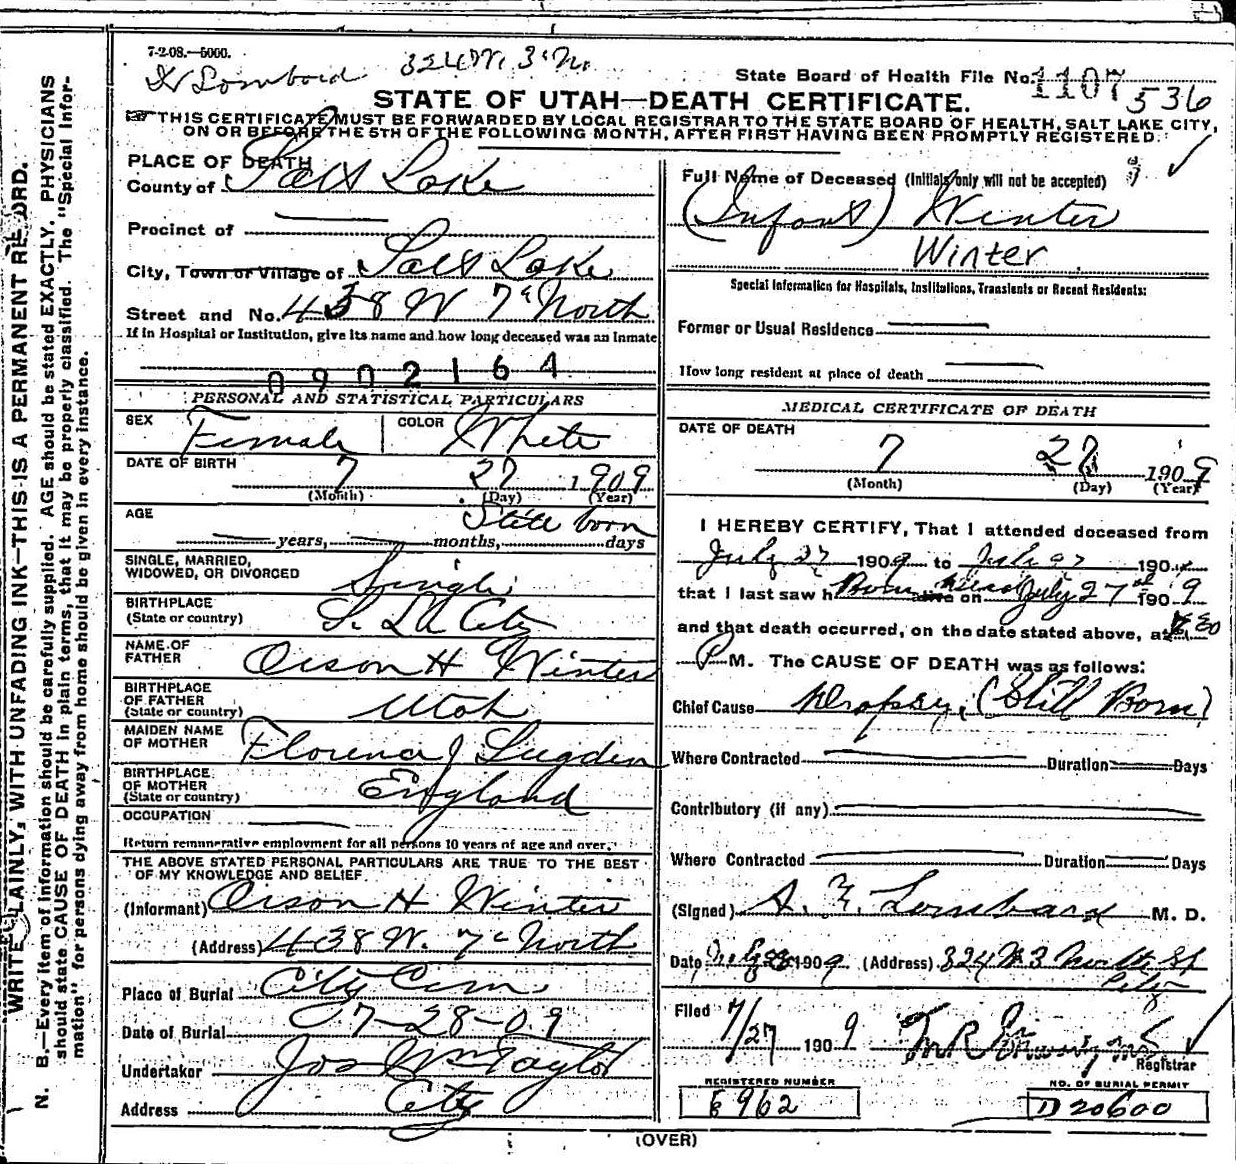 7-2-08.—5000.
Lombard 324 W. 3d No.
State Board of Health File No. 1107 536
STATE OF UTAH—DEATH CERTIFICATE.
THIS CERTIFICATE MUST BE FORWARDED BY LOCAL REGISTRAR TO THE STATE BOARD OF HEALTH, SALT LAKE CITY,
ON OR BEFORE THE 5TH OF THE FOLLOWING MONTH, AFTER FIRST HAVING BEEN PROMPTLY REGISTERED.
PLACE OF DEATH
County of Salt Lake
Precinct of
City, Town or Village of Salt Lake
Street and No. 438 W 7th North
If in Hospital or Institution, give its name and how long deceased was an Inmate
0902164
PERSONAL AND STATISTICAL PARTICULARS
SEX Female COLOR White
DATE OF BIRTH 7 27 1909
(Month) (Day) (Year)
AGE Still born
years, months, days
SINGLE, MARRIED,
WIDOWED, OR DIVORCED Single
BIRTHPLACE
(State or country) S. L. City
NAME OF
FATHER Orson H Winter
BIRTHPLACE
OF FATHER
(State or country) Utah
MAIDEN NAME
OF MOTHER Florence J Lugden
BIRTHPLACE
OF MOTHER
(State or country) England
OCCUPATION
Return remunerative employment for all persons 10 years of age and over.
THE ABOVE STATED PERSONAL PARTICULARS ARE TRUE TO THE BEST
OF MY KNOWLEDGE AND BELIEF
(Informant) Orson H Winter
(Address) 438 W. 7th North
Place of Burial City Cem
Date of Burial 7-28-09
Undertaker Jos Wm Taylor
Address City
Full Name of Deceased (Initials only will not be accepted)
(Infant) Winter
Winter
Special Information for Hospitals, Institutions, Transients or Recent Residents:
Former or Usual Residence
How long resident at place of death
MEDICAL CERTIFICATE OF DEATH
DATE OF DEATH
7 27 1909
(Month) (Day) (Year)
I HEREBY CERTIFY, That I attended deceased from
July 27 1909 to July 27 190
that I last saw h Born dead alive on July 27th 1909
and that death occurred, on the date stated above, at
P M. The CAUSE OF DEATH was as follows:
Chief Cause Dropsy, (Still Born)
Where Contracted Duration Days
Contributory (if any)
Where Contracted Duration Days
(Signed) A. Z. Lombard M. D.
Date July 28 1909 (Address) 324 W 3 North St
City
Filed 7/27 1909
Registrar
REGISTERED NUMBER
E 962
NO. OF BURIAL PERMIT
D 20600
(OVER)
WRITE PLAINLY, WITH UNFADING INK—THIS IS A PERMANENT RECORD.
N. B.—Every item of information should be carefully supplied. AGE should be stated EXACTLY. PHYSICIANS
should state CAUSE OF DEATH in plain terms, that it may be properly classified. The "Special Infor-
mation" for persons dying away from home should be given in every instance.